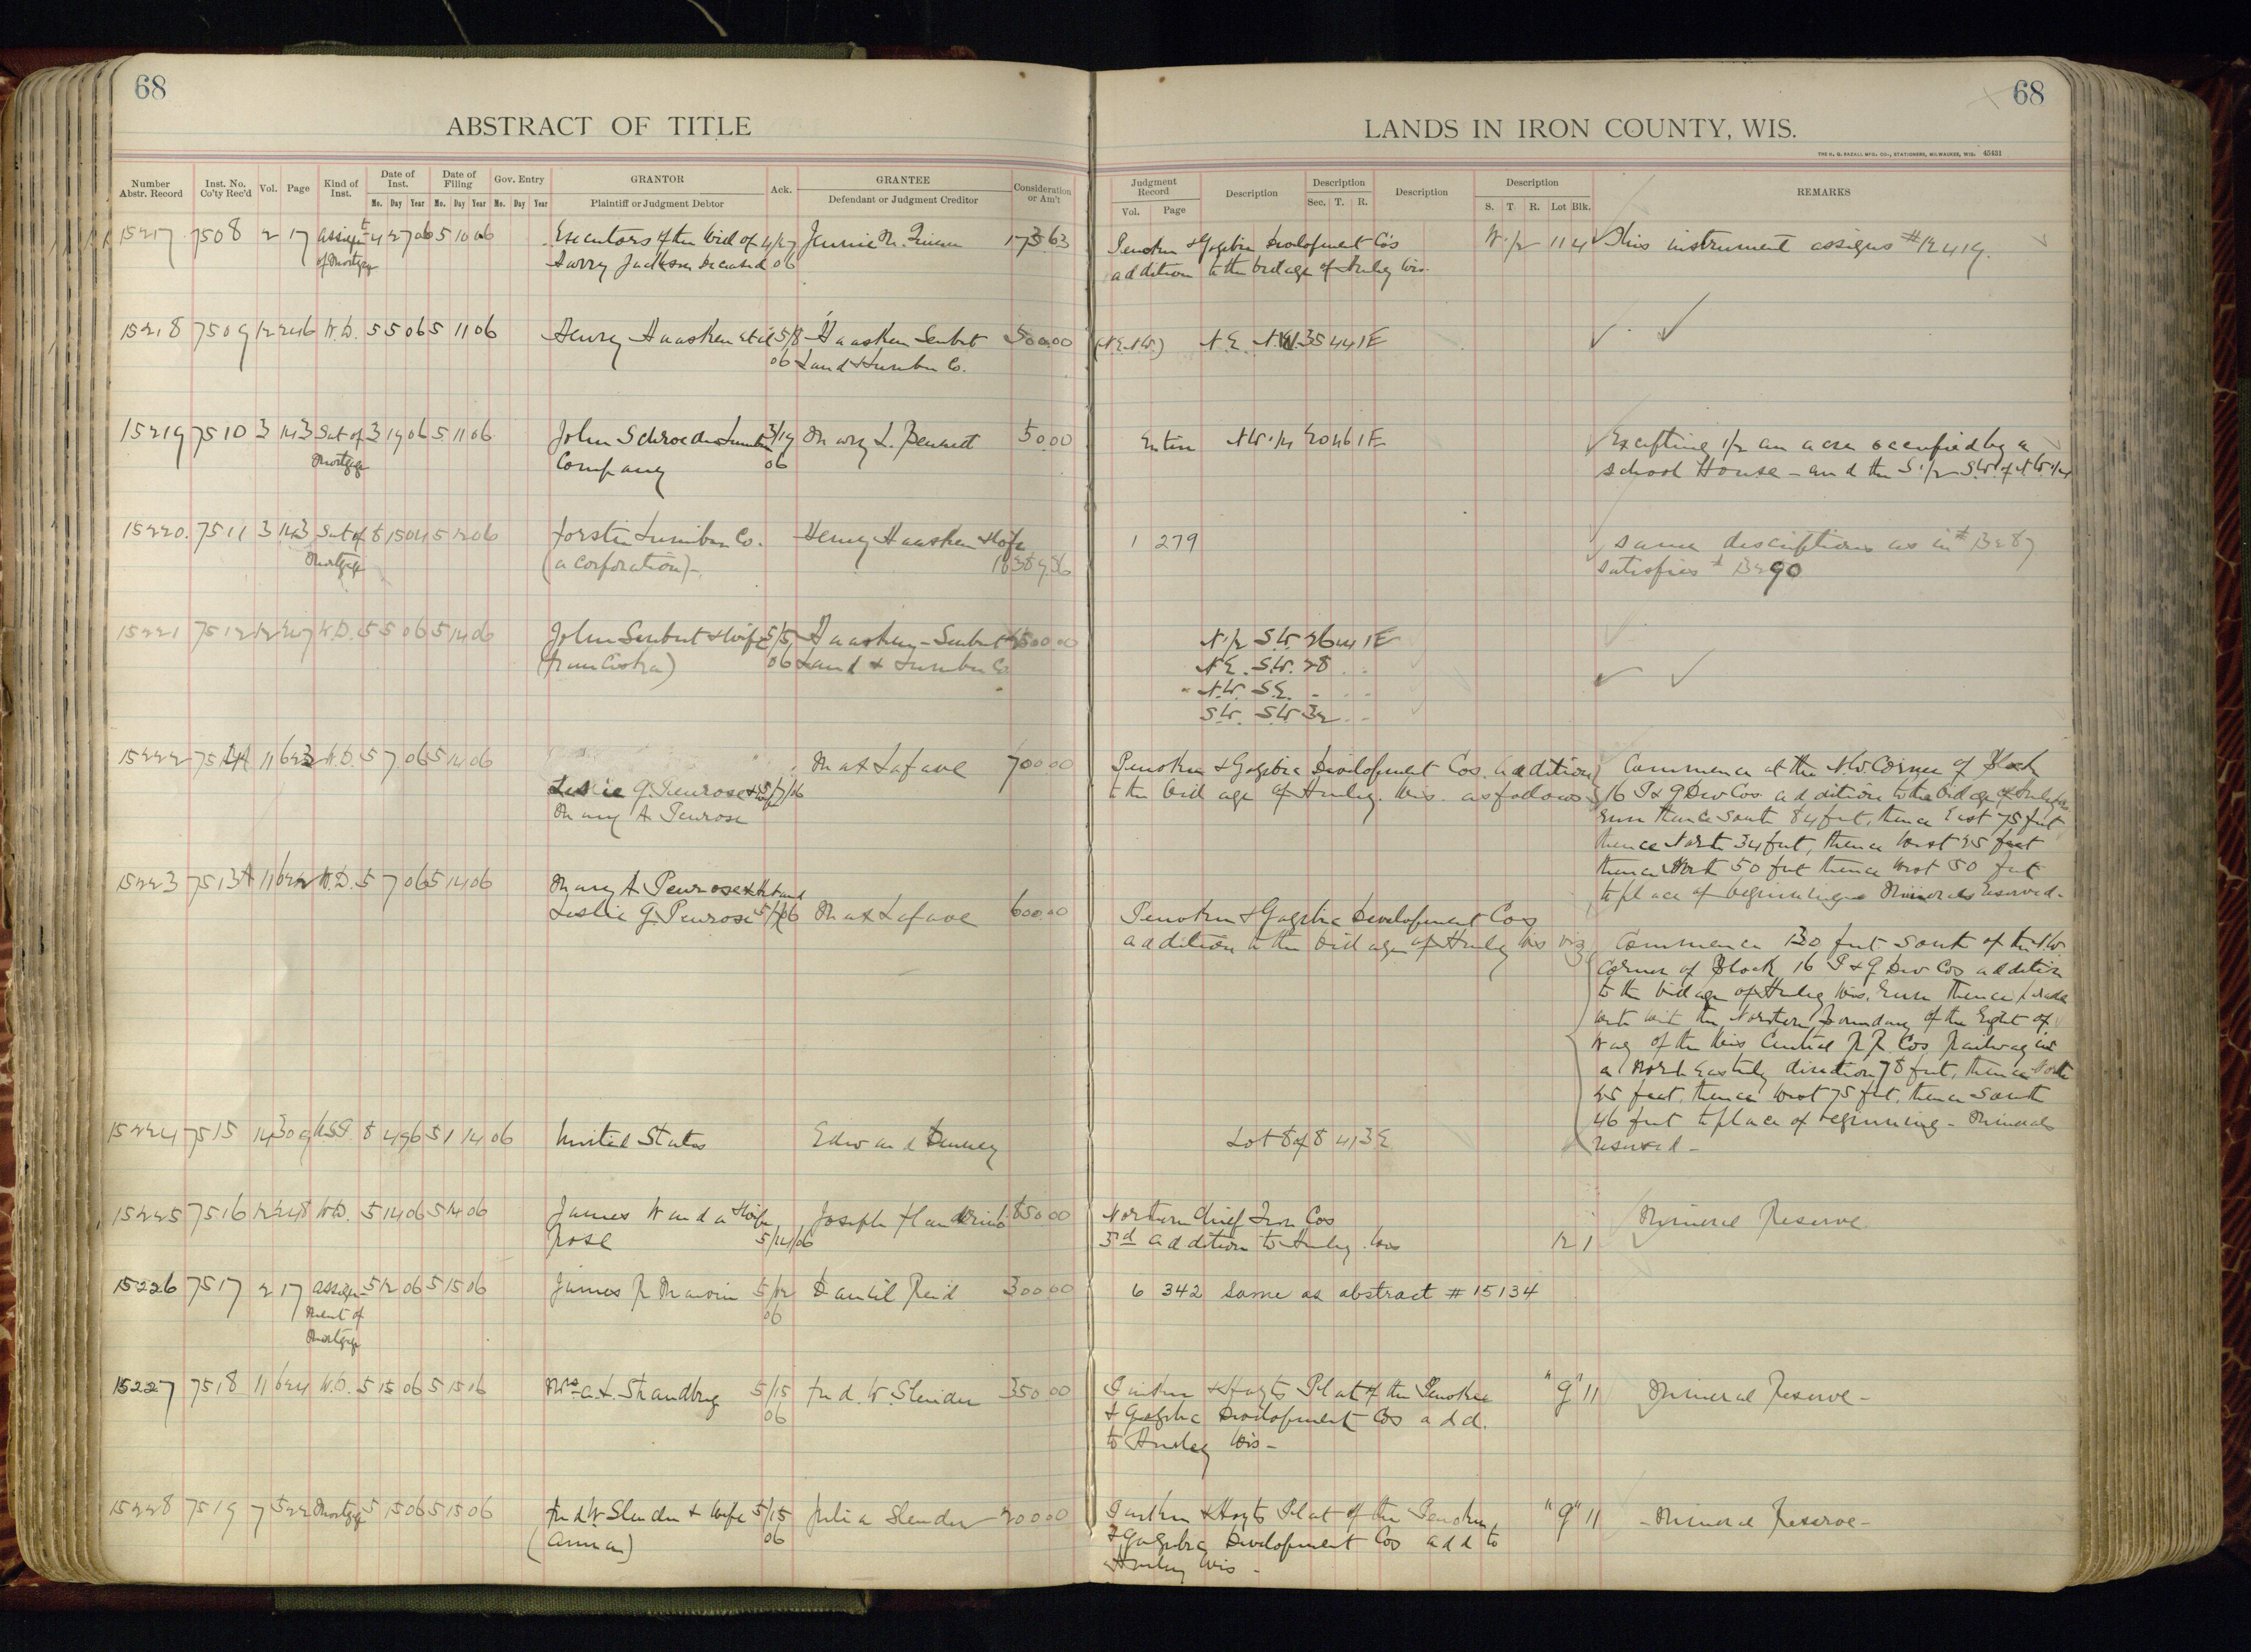 68
ABSTRACT OF TITLE
Number Abstr. Record Inst. No. Co'ty Rec'd Vol. Page Kind of Inst. Date of Inst. Mo. Day Year Date of Filing Mo. Day Year Gov. Entry Mo. Day Year GRANTOR Plaintiff or Judgment Debtor Ack. GRANTEE Defendant or Judgment Creditor Consideration or Am't
15217 7508 2 17 Assign't 4 27 06 5 10 06 Executors of the Will of 4/27 Jennie M. 173.63
of Mortgage Harry Jackson Deceased 06
15218 7509 12 246 W.D. 5 5 06 5 11 06 Henry Haasken et al 5/8 Haasken Seubert 500.00
06 Land & Lumber Co.
15219 7510 3 143 Sat of 3 19 06 5 11 06 John Schroeder Lumber 3/19 Mary L. Bennett 50.00
Mortgage Company 06
15220. 7511 3 143 Sat of 8 15 04 5 12 06 Forster Lumber Co. Henry Haasken & Wife
Mortgage (a Corporation)-
15221 7512 12 247 W.D. 5 5 06 5 14 06 John Seubert & Wife 5/5 Haasken-Seubert 00.00
06 Land & Lumber Co
15222 11 623 W.D. 5 7 06 5 14 06 Max Lafave 700.00
Leslie G. Penrose & 5/7/06
Mary A Penrose
15223 7513A 11 622 W.D. 5 7 06 5 14 06 Mary A Penrose & Husband
Leslie G. Penrose 5/7/06 Max Lafave 600.00
15224 7515 14 309 U.S.P. 8 4 96 5 14 06 United States Edward
15225 7516 12 248 W.D. 5 14 06 5 14 06 James W and a Wife, Joseph 850.00
Rose 5/14/06
15226 7517 2 17 Assign- 5 12 06 5 15 06 James R 5/12 Daniel Reid 300.00
ment of 06
Mortgage
15227 7518 11 624 W.D. 5 15 06 5 15 06 Mrs A. L. Strandberg 5/15 Fred. W. Slender 350.00
06
15228 7519 7 522 Mortgage 5 15 06 5 15 06 Fred W Slender & Wife 5/15 Julia Slender 200.00
(Anna) 06
68
LANDS IN IRON COUNTY, WIS.
THE H. G. RAZALL MFG. CO., STATIONERS, MILWAUKEE, WIS. 45431
Judgment Record Vol. Page Description Description Sec. T. R. Description Description S. T. R. Lot Blk. REMARKS
Penokee & Gogebic Development Co's W 1/2 11 4 This instrument assigns #12419.
addition to the village of Hurley Wis.
(N.E.N.W.) N.E. N.W. 35 44 1E
Entire N.W 1/4 20 46 1E Excepting 1/2 an acre occupied by a
school House - and the S 1/2 S.W. of N.W. 1/4
1 279 Same descriptions as in # 13287
satisfies # 13290
N 1/2 S.W. 26 44 1E
N.E. S.W. 28
N.W. S.E.
S.W. S.W 32
Penokee & Gogebic Development Cos. addition Commence at the N.W. Corner of Block
to the village of Hurley. Wis. as follows 16 P & G Dev Cos addition to the village of Hurley Wis.
Run thence South 84 feet, thence East 75 feet
thence North 34 feet, thence West 25 feet
thence North 50 feet thence West 50 feet
to place of beginning Minerals Reserved.
Penokee & Gogebic Development Cos
addition to the village of Hurley Wis viz Commence 130 feet South of the N.W
Corner of Block 16 P & G Dev Cos addition
to the village of Hurley Wis. Run thence
with the Northern Boundary of the Right of
Way of the Wis Central R R Cos Railway in
a North Easterly direction 78 feet, thence North
25 feet, thence West 75 feet, thence South
46 feet to place of beginning - Minerals
reserved -
Lot 8 of 8 41 3E
Northern Chief Iron Cos Mineral Reserve
3rd addition to Hurley. Wis 12 1
6 342 Same as abstract # 15134
& Hoyts Plat of the Penokee "9" 11 Mineral Reserve -
& Gogebic Development Cos add.
to Hurley Wis -
& Hoyts Plat of the Penokee "9" 11 - Mineral Reserve -
& Gogebic Development Cos add to
Hurley Wis -